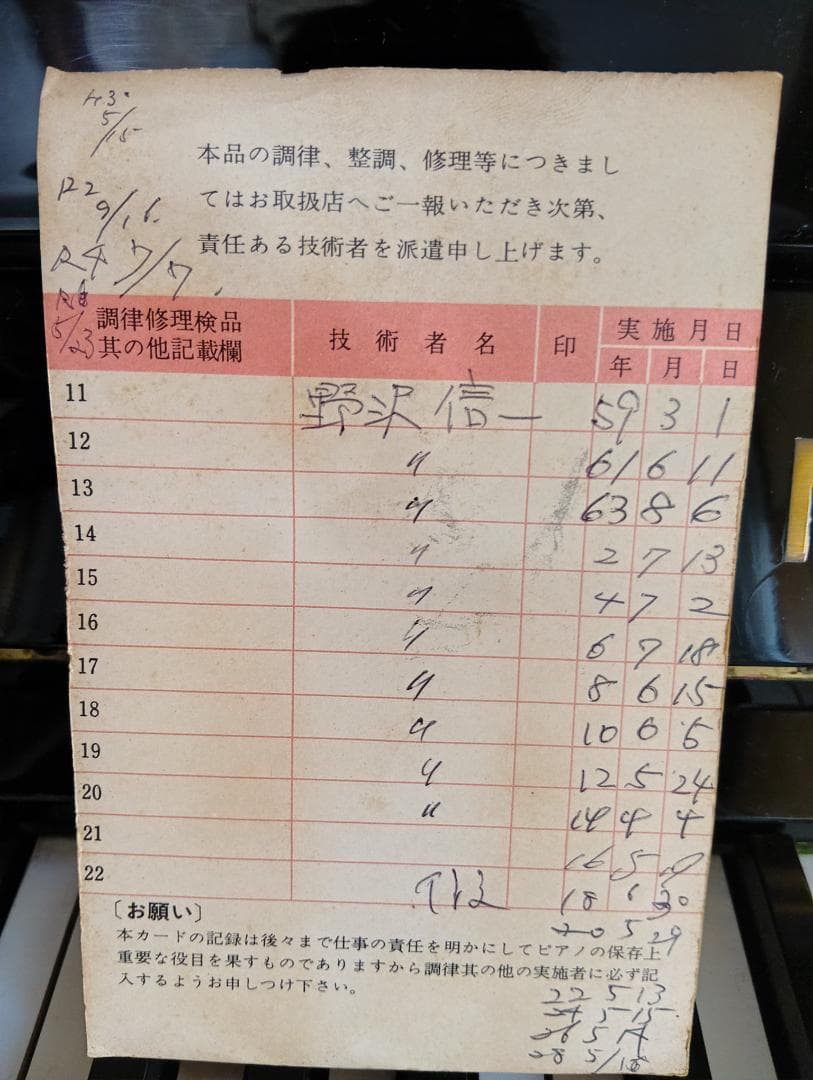 5/15
R2
9/16
R4 7/7
5/23
本品の調律、整調、修理等につきまし
てはお取扱店へご一報いただき次第、
責任ある技術者を派遣申し上げます。
調律修理検品
其の他記載欄
技術者名
印
実施月日
年 月 日
11 野沢信一 59 3 1
12 〃 61 6 11
13 〃 63 8 6
14 〃 2 7 13
15 〃 4 7 2
16 〃 6 7 18
17 〃 8 6 15
18 〃 10 6 5
19 〃 12 5 24
20 〃 14 4 4
21 16 5
22 18 6 30
20 5 29
〔お願い〕
本カードの記録は後々まで仕事の責任を明かにしてピアノの保存上
重要な役目を果すものでありますから調律其の他の実施者に必ず記
入するようお申しつけ下さい。
22 5 13
24 5 15
26 5
28 5/18